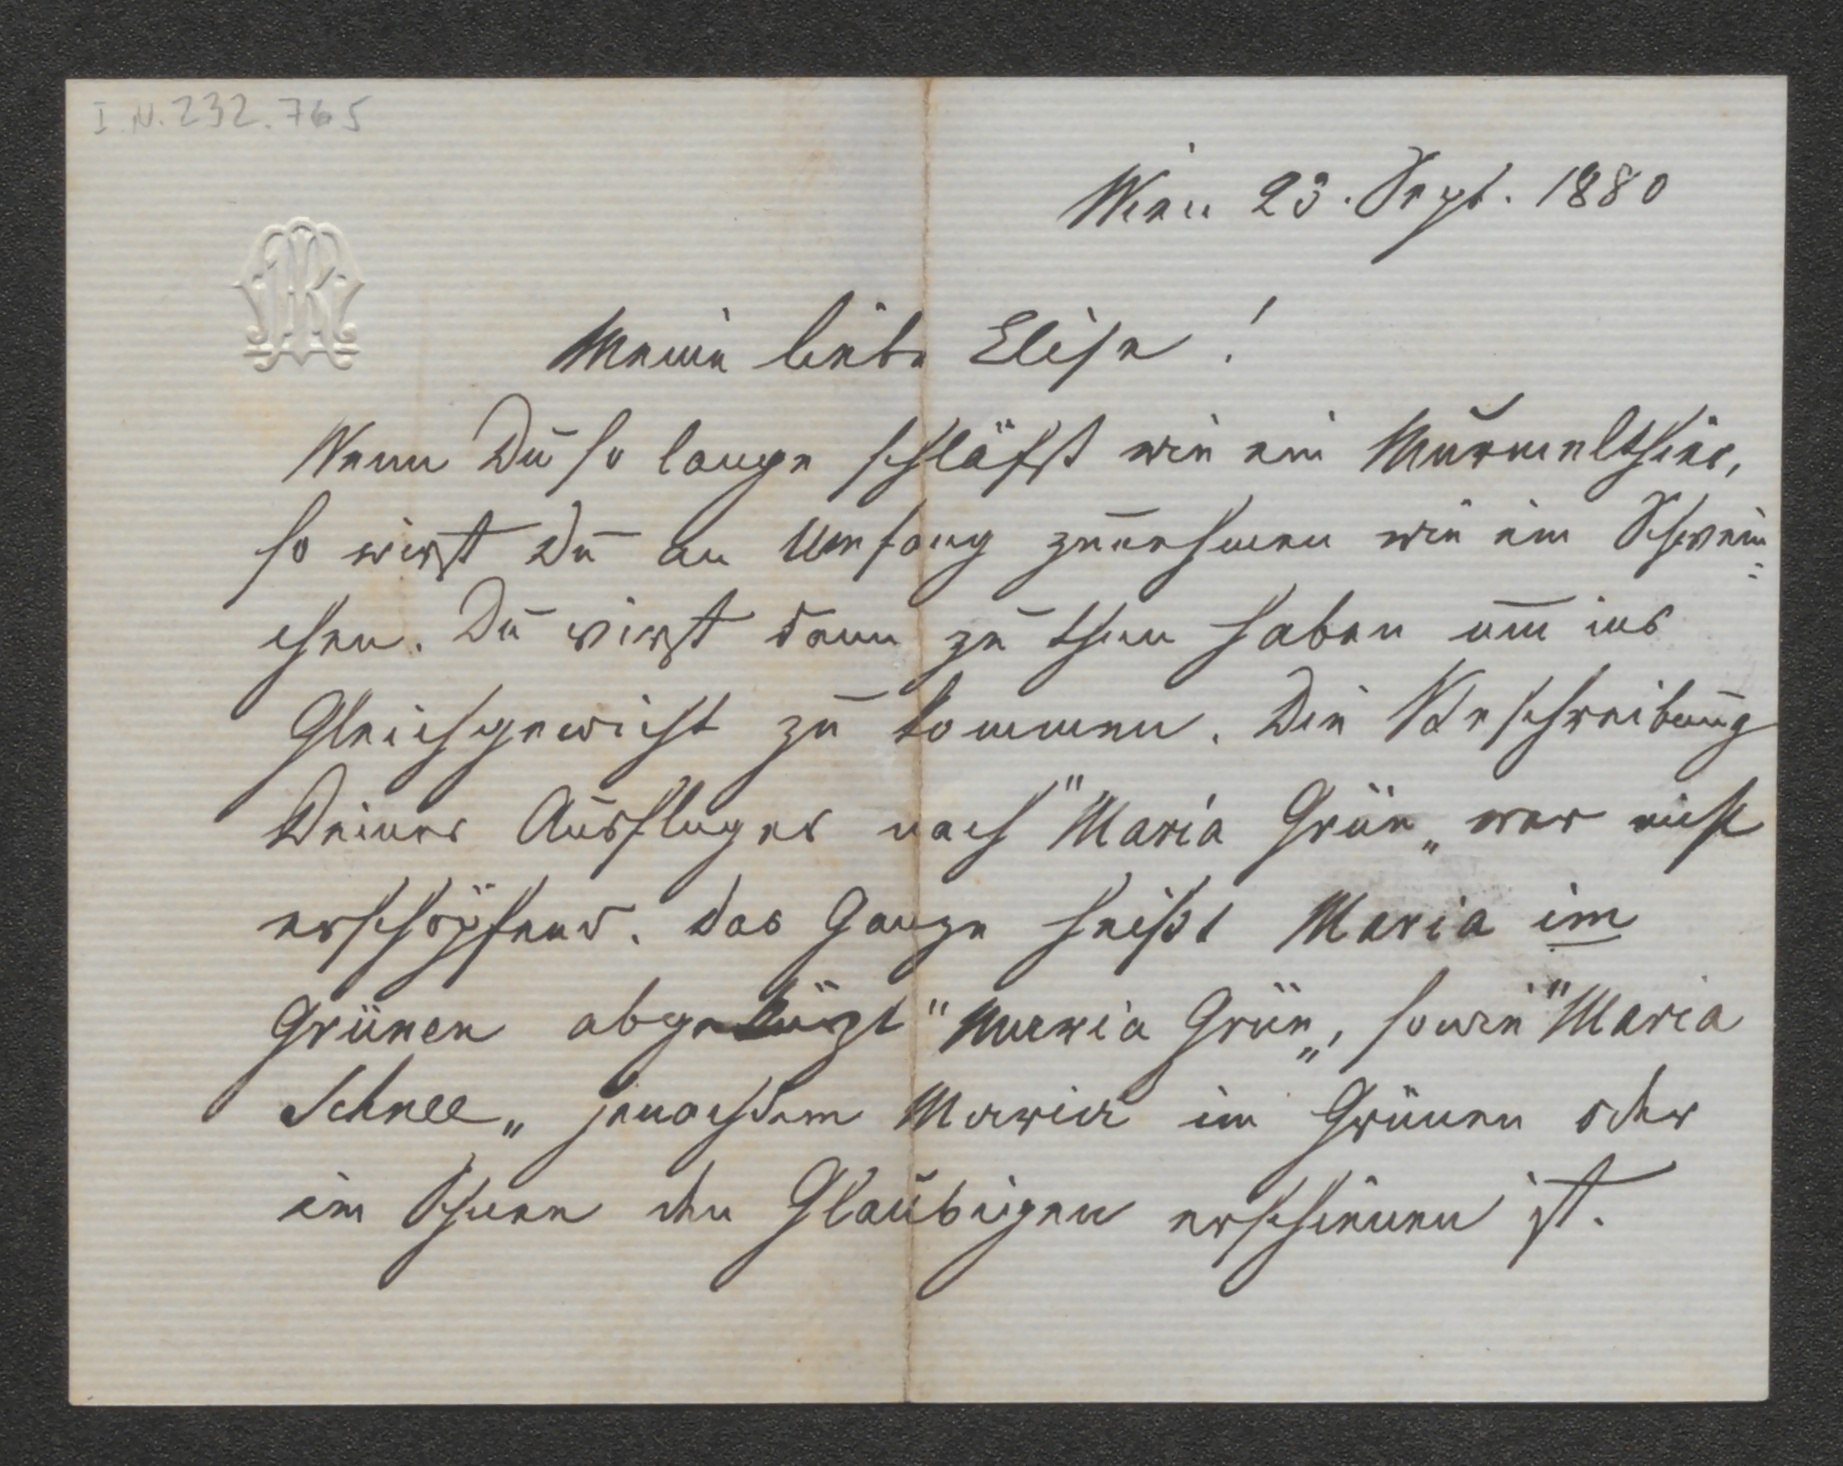 I.N. 232.765
Wien 23. Sept. 1880
Meine liebe Elise!
Wenn Du so lange schläfst wie ein Murmelthier,
so wirst Du an Umfang zunehmen wie ein Schwein=
chen. Du wirst dann zu thun haben um ins
Gleichgewicht zu kommen. Die Beschreibung
Deines Ausfluges nach "Maria Grün„ war nicht
erschöpfend. Das Ganze heißt Maria im
Grünen abgekürzt "Maria Grün„, sowie "Maria
Schnee„ jenachdem Maria im Grünen oder
im Schnee den Glaubigen erschienen ist.